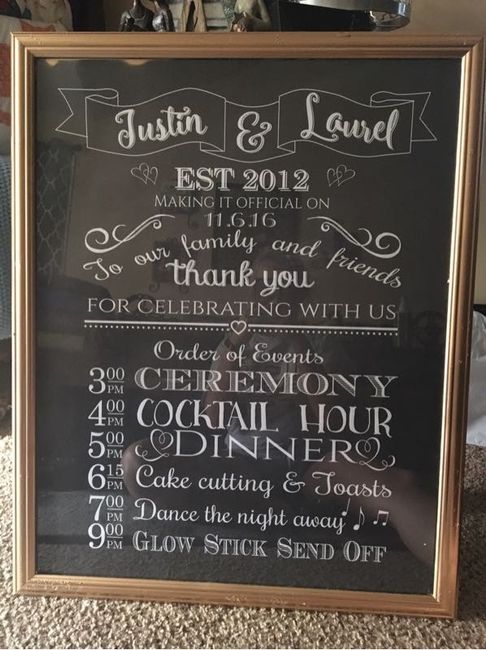 Justin & Laurel
EST 2012
MAKING IT OFFICIAL ON
11.6.16
To our family and friends
thank you
FOR CELEBRATING WITH US
Order of Events
3:00 PM CEREMONY
4:00 PM COCKTAIL HOUR
5:00 PM DINNER
6:15 PM Cake cutting & Toasts
7:00 PM Dance the night away
9:00 PM GLOW STICK SEND OFF